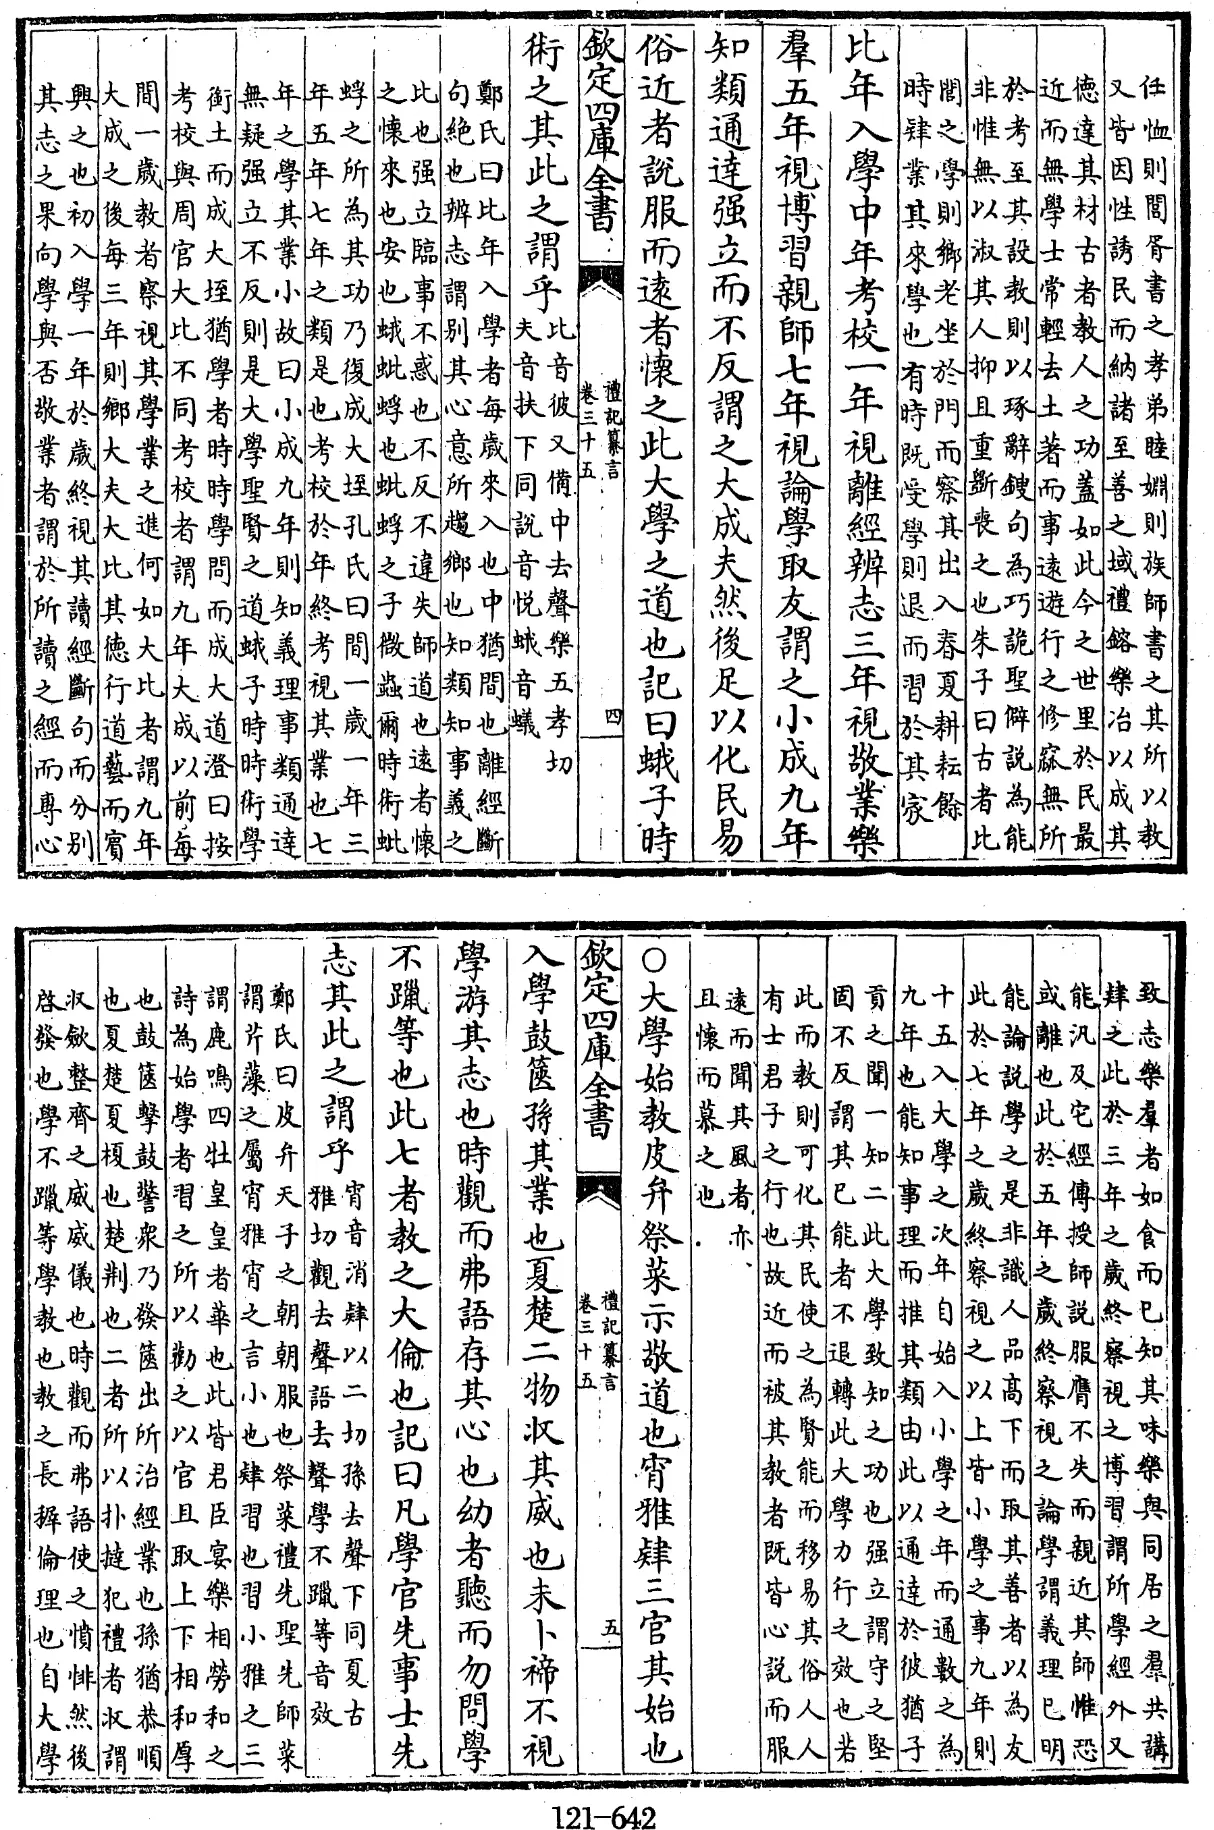 任恤則閭胥書之孝弟睦婣則族師書之其所以教
又皆因性誘民而納諸至善之域禮鎔樂冶以成其
德達其材古者教人之功蓋如此今之世里於民最
近而無學士常輕去土著而事遠遊行之修窳無所
於考至其設教則以琢辭鎪句為巧詭聖僻説為能
非惟無以淑其人抑且重斵喪之也朱子曰古者比
閭之學則鄉老坐於門而察其出入春夏耕耘餘
時肄業其來學也有時既受學則退而習於其家
比年入學中年考校一年視離經辨志三年視敬業樂
羣五年視博習親師七年視論學取友謂之小成九年
知類通達强立而不反謂之大成夫然後足以化民易
俗近者說服而遠者懷之此大學之道也記曰蛾子時
欽定四庫全書
禮記纂言
卷三十五
四
術之其此之謂乎
比音彼又備中去聲樂五孝切
夫音扶下同説音悦蛾音蟻
鄭氏曰比年入學者每歲來入也中猶間也離經斷
句絶也辨志謂别其心意所趨鄉也知類知事義之
比也强立臨事不惑也不反不違失師道也遠者懷
之懷來也安也蛾蚍蜉也蚍蜉之子微蟲爾時術蚍
蜉之所為其功乃復成大垤孔氏曰間一歲一年三
年五年七年之類是也考校於年終考視其業也七
年之學其業小故曰小成九年則知義理事類通達
無疑强立不反則是大學聖賢之道蛾子時時術學
銜土而成大垤猶學者時時學問而成大道澄曰按
考校與周官大比不同考校者謂九年大成以前每
間一歲教者察視其學業之進何如大比者謂九年
大成之後每三年則鄉大夫大比其德行道藝而賓
興之也初入學一年於歲終視其讀經斷句而分别
其志之果向學與否敬業者謂於所讀之經而專心
致志樂羣者如食而已知其味樂與同居之羣共講
肄之此於三年之歲終察視之博習謂所學經外又
能汎及它經傳授師説服膺不失而親近其師惟恐
或離也此於五年之歲終察視之論學謂義理已明
能論説學之是非識人品高下而取其善者以為友
此於七年之歲終察視之以上皆小學之事九年則
十五入大學之次年自始入小學之年而通數之為
九年也能知事理而推其類由此以通達於彼猶子
貢之聞一知二此大學致知之功也强立謂守之堅
固不反謂其已能者不退轉此大學力行之效也若
此而教則可化其民使之為賢能而移易其俗人人
有士君子之行也故近而被其教者既皆心説而服
遠而聞其風者亦
且懷而慕之也
○大學始教皮弁祭菜示敬道也宵雅肄三官其始也
欽定四庫全書
禮記纂言
卷三十五
五
入學鼓篋孫其業也夏楚二物收其威也未卜禘不視
學游其志也時觀而弗語存其心也幼者聽而勿問學
不躐等也此七者教之大倫也記曰凡學官先事士先
志其此之謂乎
宵音消肄以二切孫去聲下同夏古
雅切觀去聲語去聲學不躐等音效
鄭氏曰皮弁天子之朝朝服也祭菜禮先聖先師菜
謂芹藻之屬宵雅宵之言小也肄習也習小雅之三
謂鹿鳴四牡皇皇者華也此皆君臣宴樂相勞和之
詩為始學者習之所以勸之以官且取上下相和厚
也鼓篋擊鼓警衆乃發篋出所治經業也孫猶恭順
也夏楚夏榎也楚荆也二者所以扑撻犯禮者收謂
收斂整齊之威威儀也時觀而弗語使之憤悱然後
啓發也學不躐等學教也教之長穉倫理也自大學
121-642